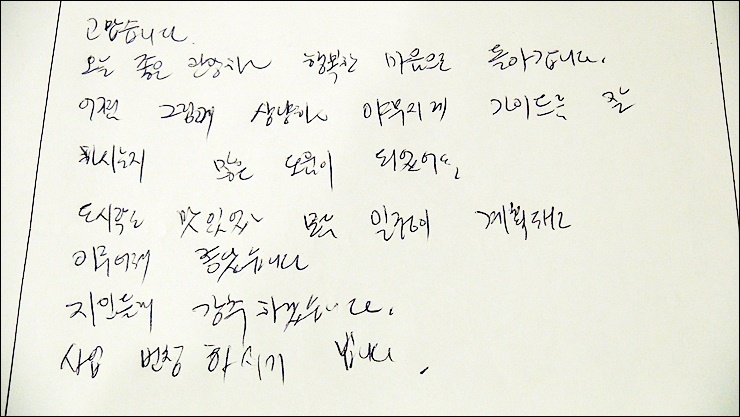 고맙습니다.
오늘 좋은 관광하고 행복한 마음으로 돌아갑니다.
어쩜 그렇게 상냥하고 야무지게 가이드를 잘
하시는지 많은 도움이 되었어요.
도시락도 맛있었고 모든 일정이 계획대로
이루어져 좋았습니다
지인들께 강추 하겠습니다.
사업 번창 하시기 빕니다.